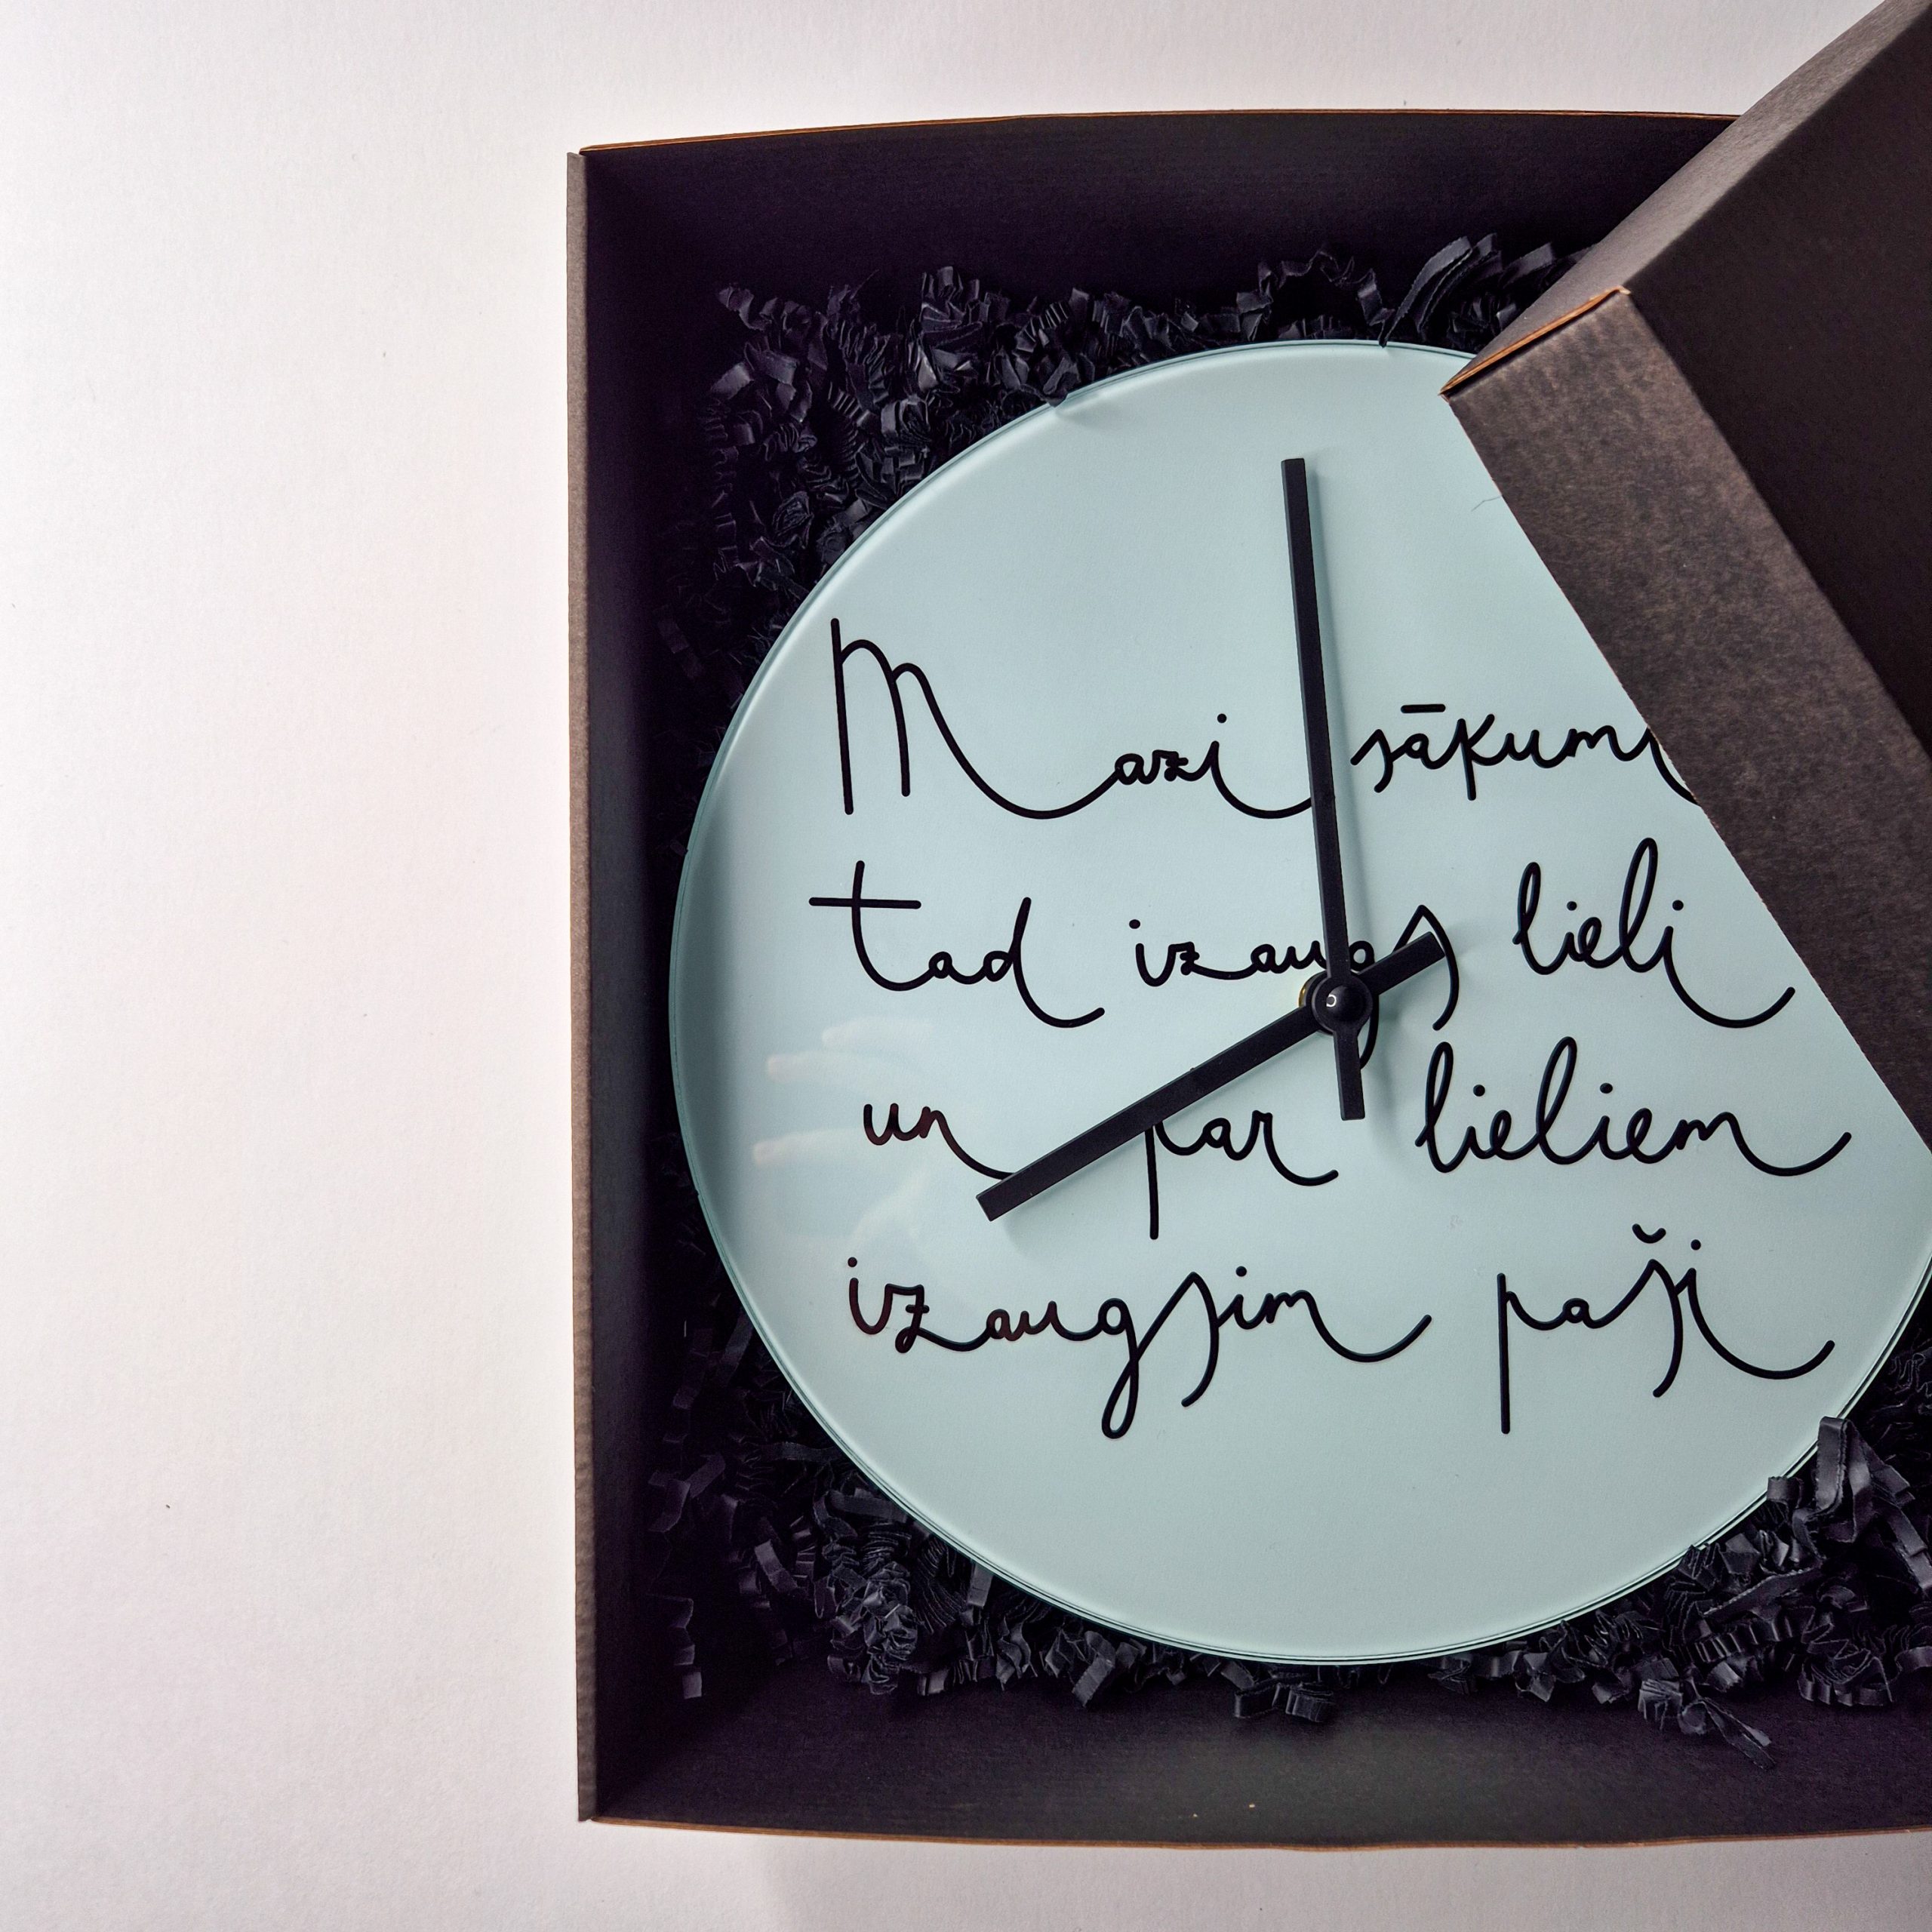 Mazi sākumi
tad izaugs lieli
un par lieliem
izaugsim paši